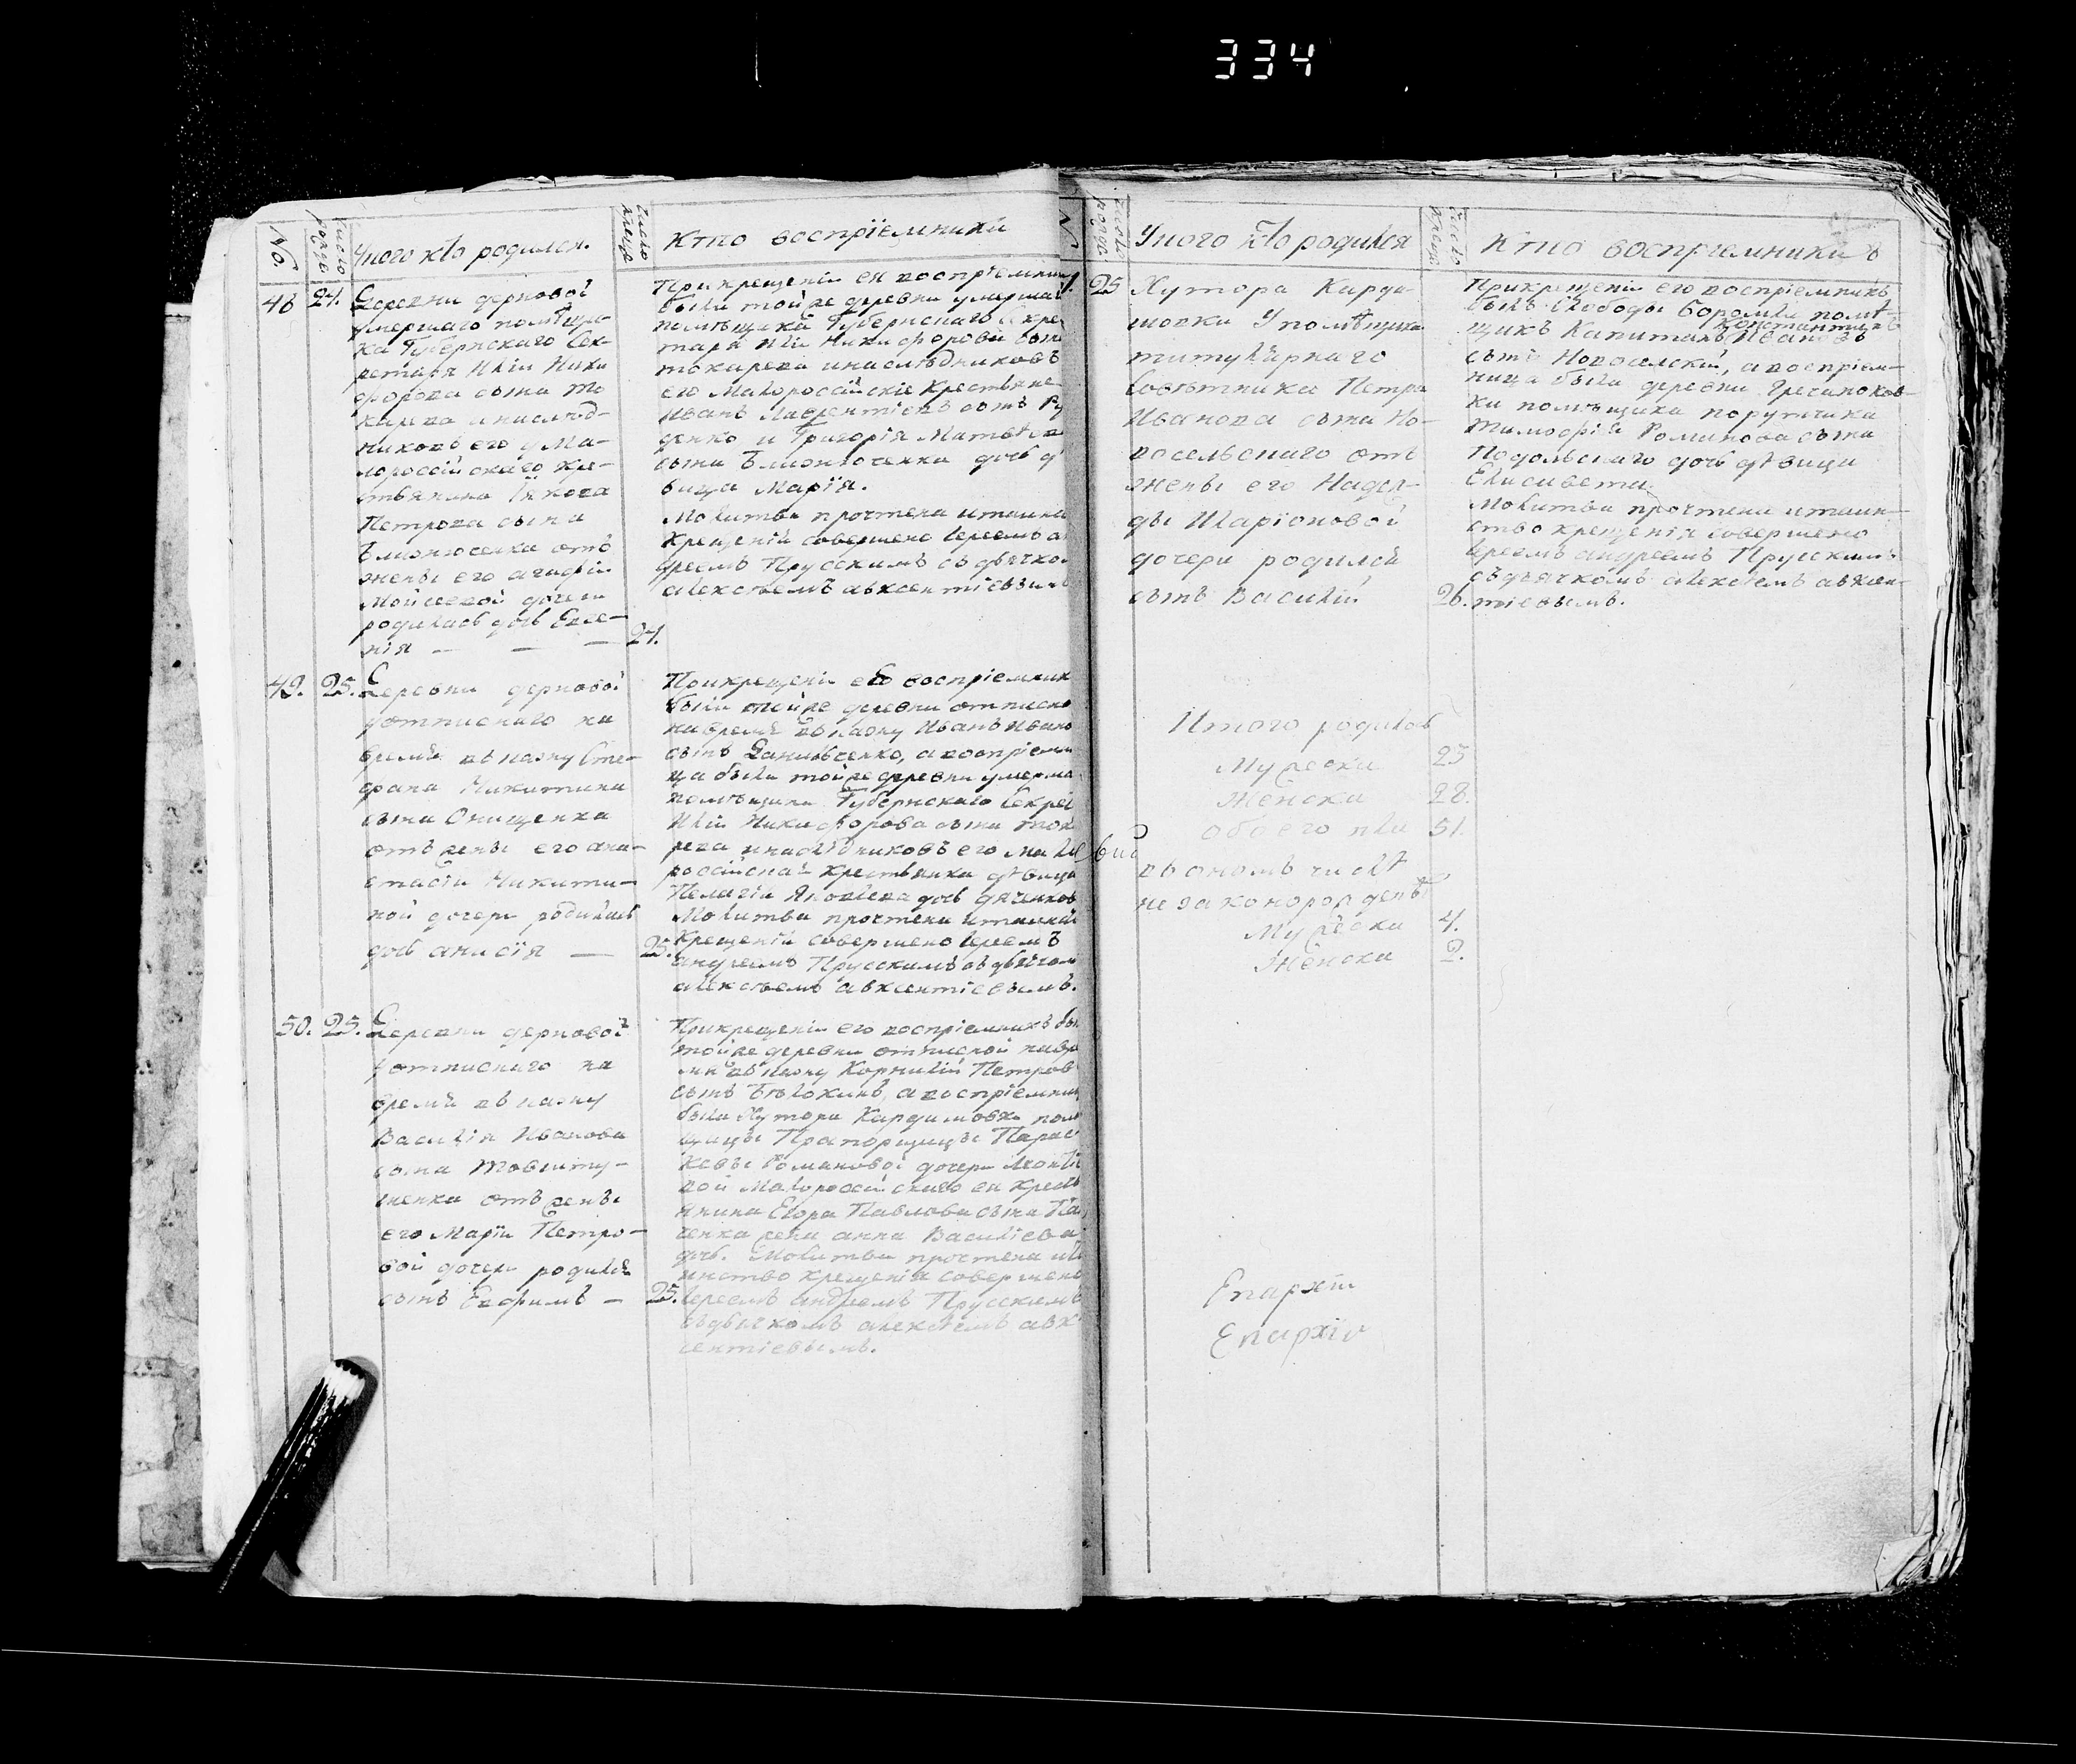 334
№.
Число рожде
Укого кто родился.
Число креще
Кто восприемники
48
24.
Деревни дерновой
умершаго помѣщи-
ка Губернскаго Сек-
ретаря Иліи Ники
форова сына То
карева инаслѣд-
никовъ его у Ма-
лоросійскаго кре-
стьянина Іякова
Петрова сына
Близнюченка отъ
жены его агафіи
Мойсеевой дочери
родилась дочь Евге-
нія — — — 24.
Прикрещеніи ея восприемник
были тойже деревни умершаг
помѣщика Губернскаго Секре
таря Иліи Никифорова сына
токарева инаслѣдниковъ
его Малоросійскіе Крестьяне
Иванъ Лаврентіевъ сынъ Ру
денко и Григорія Матвѣева
сына Близнюченка дочь дѣ
вица Марія.
Молитва прочтена итаинс
Крещенія совершено Іереемъ ан
дреемъ Прусскимъ съ дьячком
алексѣемъ авксентіевымъ
49.
25.
Деревни дерновой
уотписнаго на
время въ казну Сте-
фана Никитина
сына Онищенка
отъ жены его ана-
стасіи Никити-
ной дочери родилась
дочь анисія — 25.
Прикрещеніи его восприемник
были тойже деревни отписно
навремя въ казну Иванъ Ивано
сынъ Данильченко, а восприемн
ца была тойже деревни умерша
помѣщика Губернскаго Секрет
Иліи Никифорова сына тока
рева инаслѣдниковъ его мало
російская крестьянка дѣвица
Пелагія Яковлева дочь дяченков
Молитва прочтена итаинс
Крещенія совершено Іереемъ
андреемъ Прусскимъ съ дьячком
алексѣемъ авксентіевымъ.
50.
25.
Деревни дерновой
уотписнаго на
время въ казну
Василія Иванова
сына Товсту-
шенка отъ жены
его Маріи Петро-
вой дочери родился
сынъ Евфимъ — 25.
Прикрещеніи его восприемникъ бы
тойже деревни отписной навре
мя въ казну Корнилій Петров
сынъ Бѣлокинь, а восприемни
была Хутора Кардашовки помѣ
щицы Прапорщицы Парас
кевы Романовой дочери Леонть
вой Малоросійскаго ея крест
янина Егора Павлова сына Па
ченка жена анна Василіева
дочь. Молитва прочтена ита
инство крещенія совершено
Іереемъ андреемъ Прусскимъ
съдьячкомъ алексѣемъ авк
сентіевымъ.
№
Число рожде
Укого кто родился
Число креще
Кто восприемникъ
25
Хутора Карда-
шовки Упомѣщика
титулярнаго
Совѣтника Петра
Иванова сына Но-
восельскаго отъ
жены его Надеж-
ды Иларіоновой
дочери родился
сынъ Василій 26.
Прикрещеніи его восприемникъ
былъ Слободы Боромли помѣ-
щикъ Капитанъ Константинъ Ивановъ
сынъ Новоселскій, а восприем-
ница была деревни Гречаноков-
ки помѣщика порутчика
Тимофія Романова сына
Подольскаго дочь дѣвица
Елисавета.
Молитва прочтена итаин-
ство крещенія совершено
Іереемъ андреемъ Прусскимъ
съдьячкомъ алексѣемъ авксен-
тіевымъ.
Итого родилось
Мужеска 23
Женска 28.
обоего пла 51.
въ ономъ числѣ
незаконорожденѣ
Мужеска 4.
Женска 2.
Епархіи
Епархіи